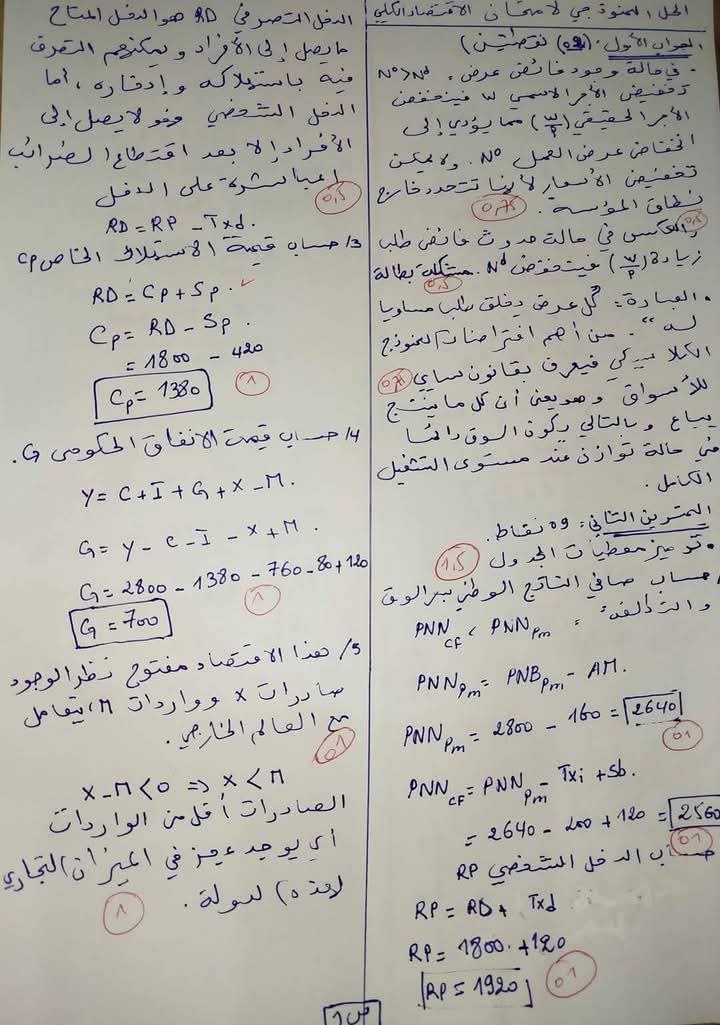 الحل النموذجي لامتحان الاقتصاد الكلي
الجواب الأول: (02) نقطتين)
- في حالة وجود فائض عرض، Nᵒ > Nᵈ
تخفيض الأجر الاسمي w فينخفض
الأجر الحقيقي (w/p) مما يؤدي إلى
انخفاض عرض العمل Nᵒ. ولا يمكن
تخفيض الأسعار لأنها تتحدد خارج
نطاق المؤسسة. 0,75
والعكس في حالة حدوث فائض طلب 0,5
زيادة (w/p) فينخفض Nᵈ. مشكلة بطالة 0,5
• العبارة: "كل عرض يخلق طلبا مساويا
له". من أهم افتراضات النموذج
الكلاسيكي فيعرف بقانون ساي
للأسواق وهو يعني أن كل ما ينتج
يباع وبالتالي يكون السوق دائما
في حالة توازن عند مستوى التشغيل
الكامل.
التمرين الثاني: 09 نقاط.
• ترميز معطيات الجدول 1,5
حساب صافي الناتج الوطني بسعر السوق
والتكلفة: PNN_CF , PNN_pm
PNN_pm = PNB_pm - AM.
PNN_pm = 2800 - 160 = 2640
01
PNN_CF = PNN_pm - Txi + Sb.
= 2640 - 200 + 120 = 2560
01
حساب الدخل الشخصي RP
RP = RD + Txd
RP = 1800 + 120
RP = 1920 01
الدخل التصرفي RD هو الدخل المتاح
ما يصل إلى الأفراد ويمكنهم التصرف
فيه باستهلاكه وإدخاره، أما
الدخل الشخصي فهو لا يصل إلى
الأفراد إلا بعد اقتطاع الضرائب
المباشرة على الدخل 0,5
RD = RP - Txd.
3/ حساب قيمة الاستهلاك الخاص Cp
RD = Cp + Sp.
Cp = RD - Sp.
= 1800 - 420
Cp = 1380 1
4/ حساب قيمة الانفاق الحكومي G.
Y = C + I + G + X - M.
G = Y - C - I - X + M.
G = 2800 - 1380 - 760 - 80 + 120
G = 700 1
5/ هذا الاقتصاد مفتوح نظرا لوجود
صادرات X وواردات M، يتعامل
مع العالم الخارجي.
01
X - M < 0 ⇒ X < M
الصادرات أقل من الواردات
أي يوجد عجز في الميزان التجاري
لهذه الدولة. 1
ص 1